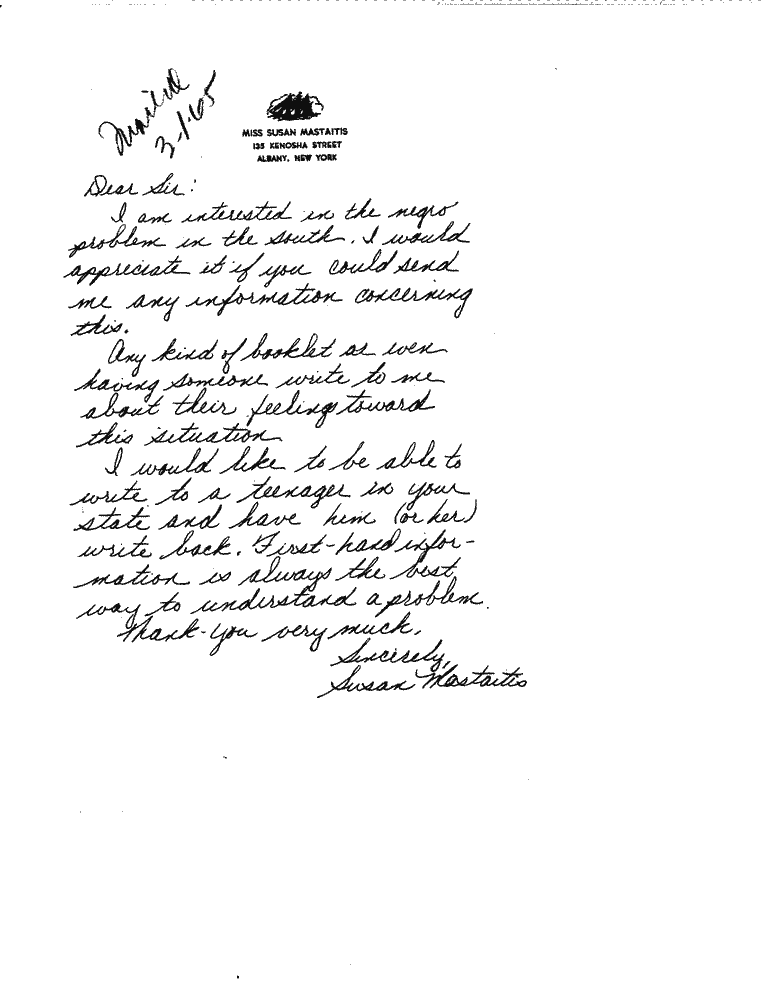 Mailed
3-1-65
MISS SUSAN MASTAITIS
135 KENOSHA STREET
ALBANY, NEW YORK
Dear Sir:
I am interested in the negro
problem in the south. I would
appreciate it if you could send
me any information concerning
this.
Any kind of booklet or even
having someone write to me
about their feelings toward
this situation
I would like to be able to
write to a teenager in your
state and have him (or her)
write back. First-hand infor-
mation is always the best
way to understand a problem.
Thank-you very much.
Sincerely,
Susan Mastaitis